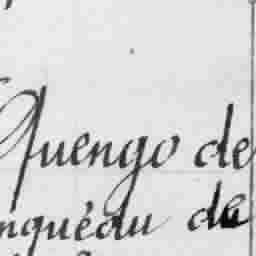 Quengo de
nquédu de